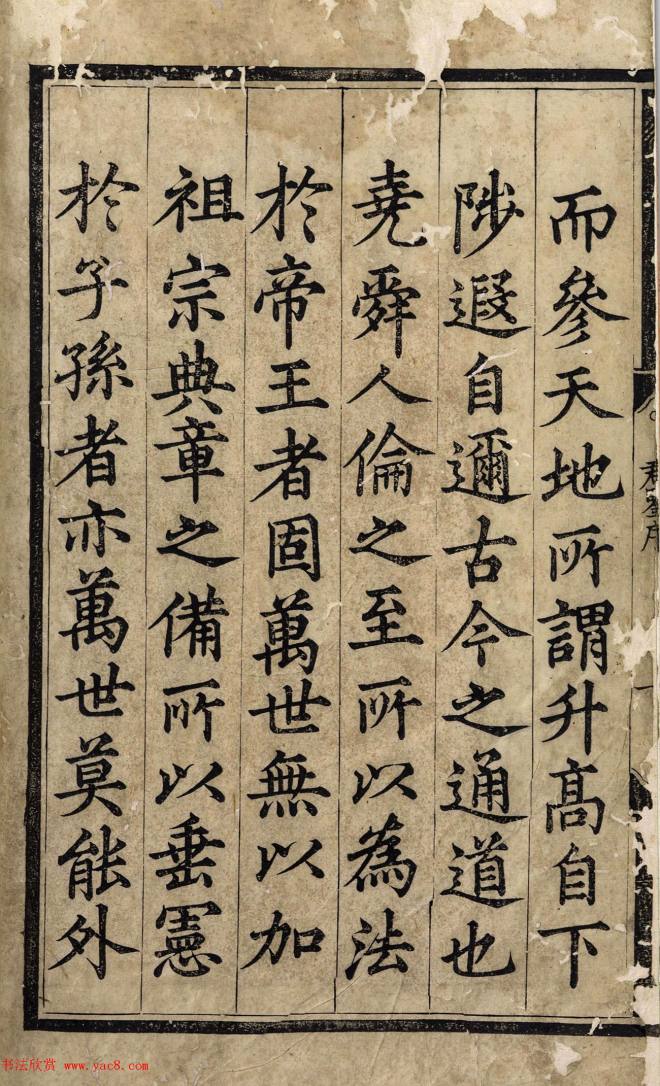 而參天地所謂升髙自下
陟遐自邇古今之通道也
堯舜人倫之至所以為法
於帝王者固萬世無以加
祖宗典章之備所以垂憲
於子孫者亦萬世莫能外
书法欣赏 www.yac8.com